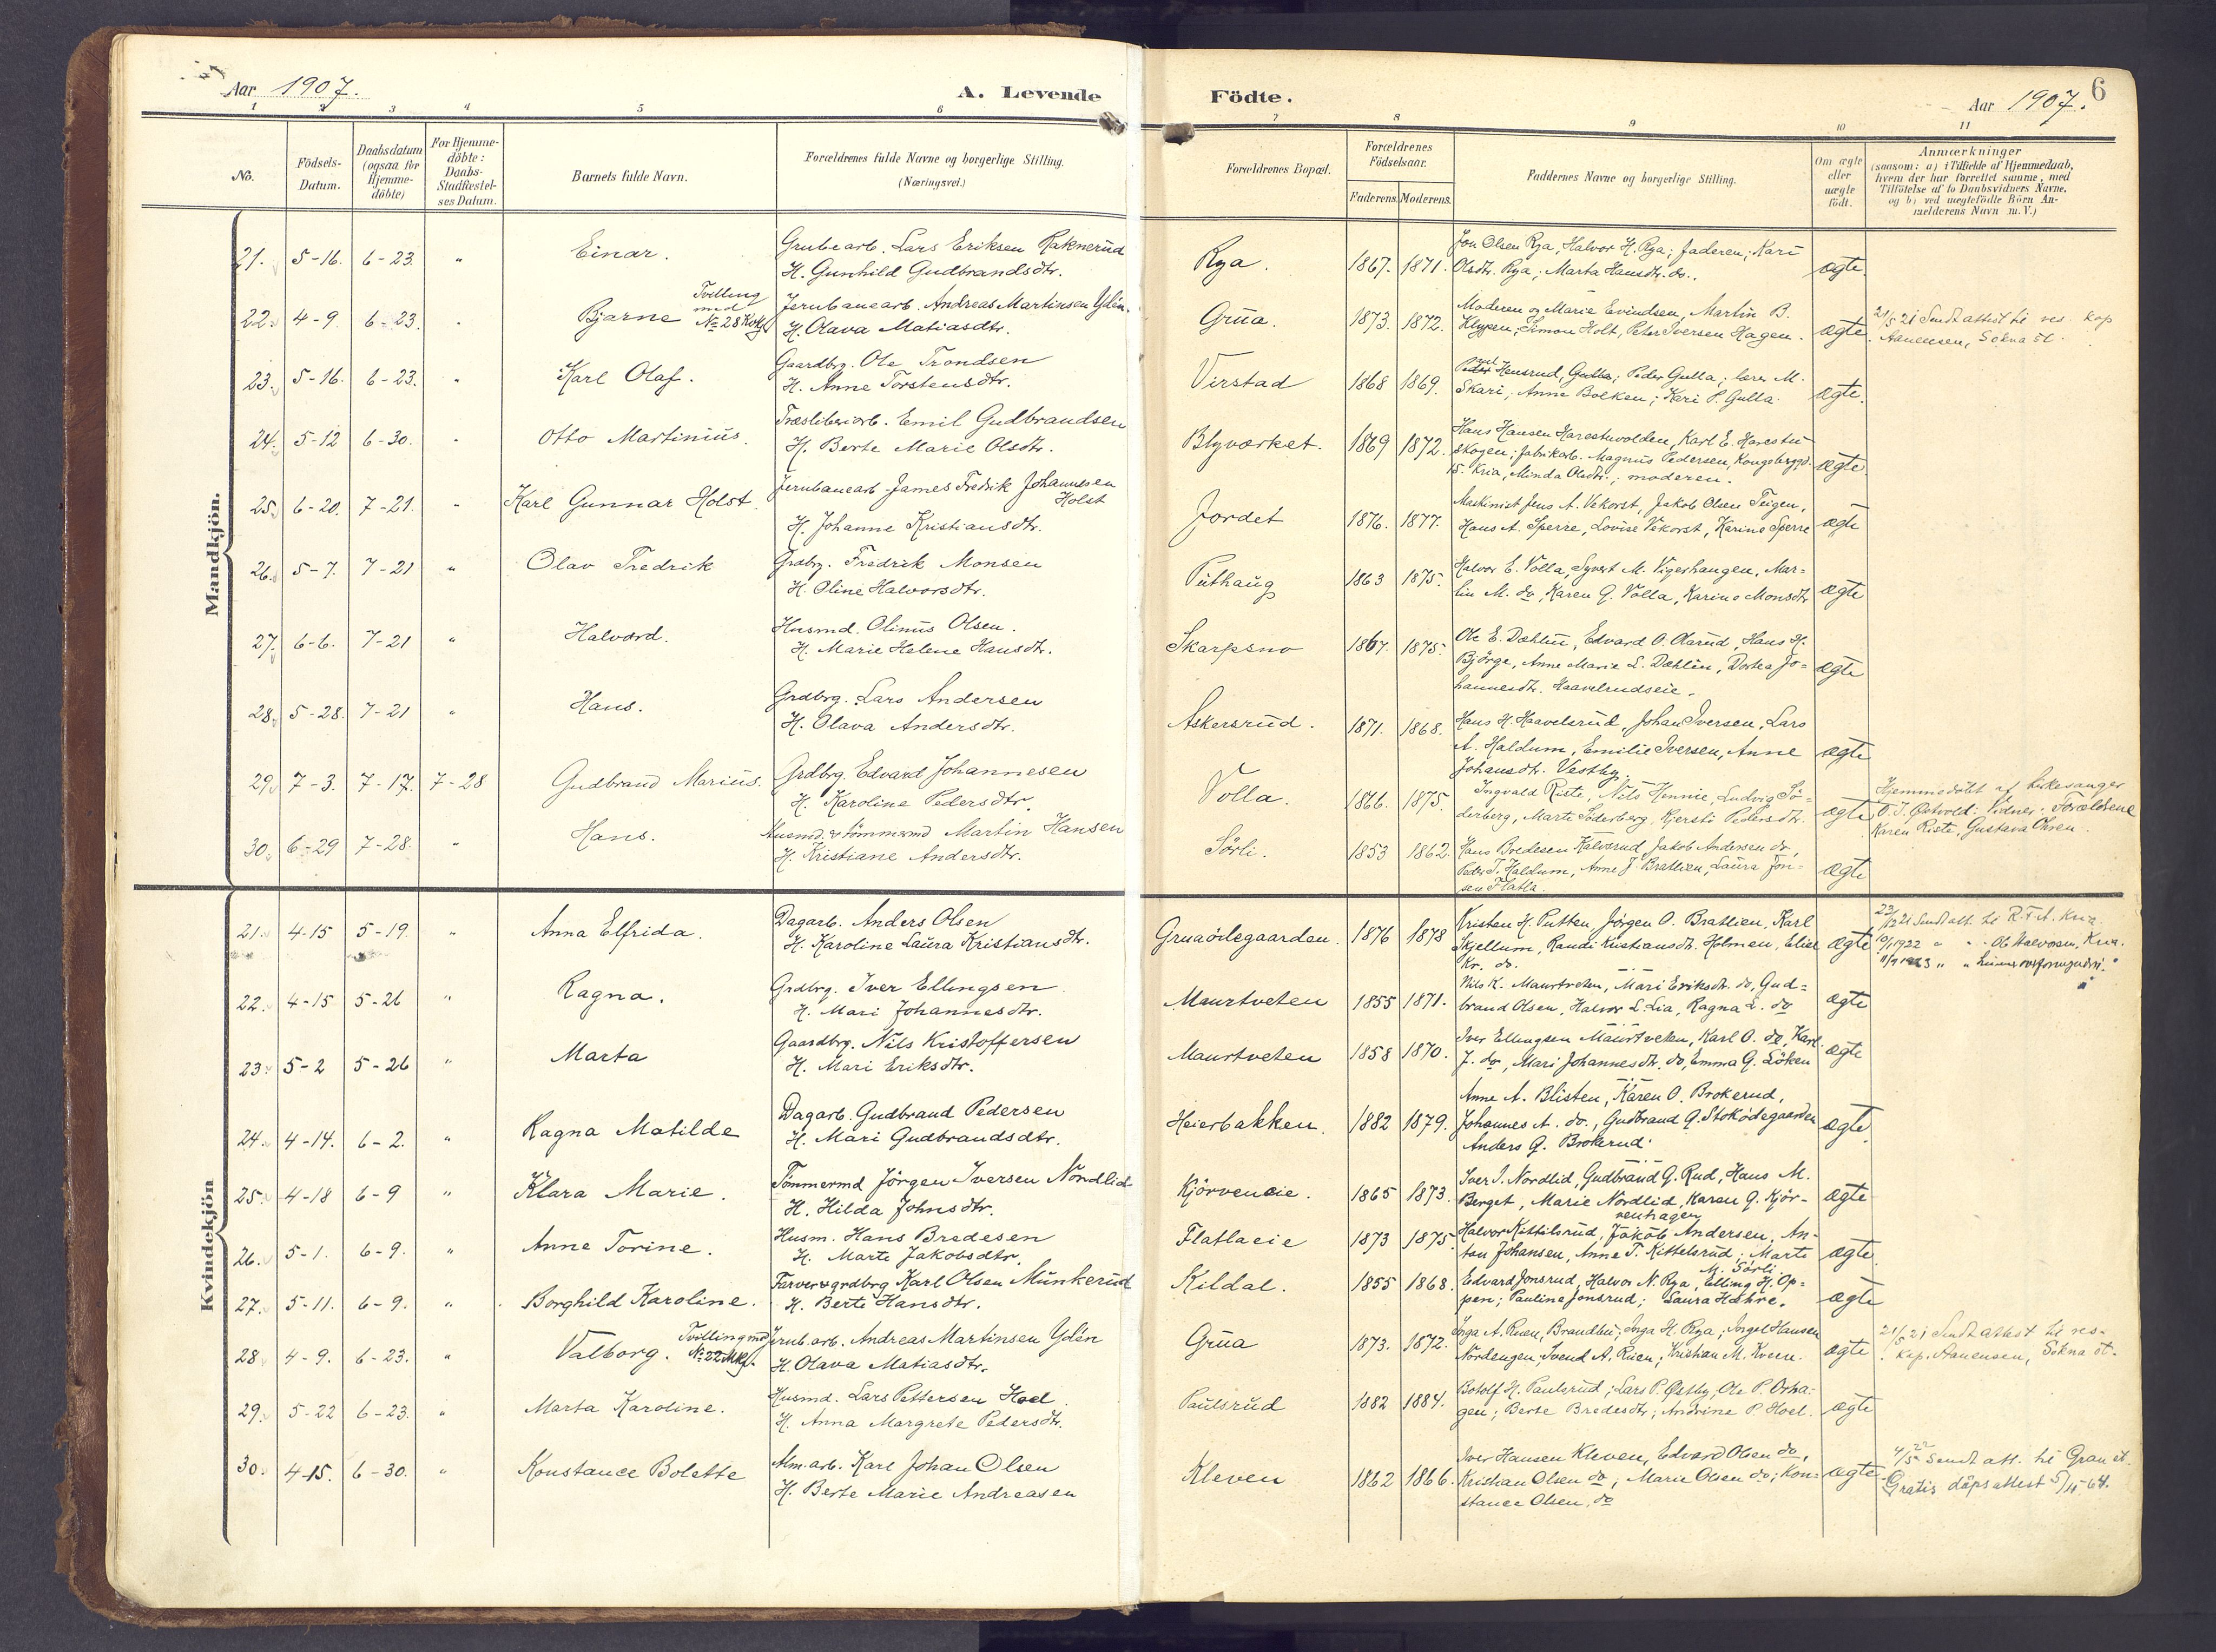 Aar 1907.
A. Levende
Födte.
Aar 1907.
6
1 2 3 4 5 6 7 8 9 10 11
No.
Födsels-
Datum.
Daabsdatum
(ogsaa for
Hjemme-
döbte)
For Hjemme-
döbte:
Daabs-
Stadfæstel-
ses Datum.
Barnets fulde Navn.
Forældrenes fulde Navne og borgerlige Stilling.
(Næringsvei.)
Forældrenes Bopæl.
Forældrenes
Födselsaar.
Faderens.
Moderens.
Faddernes Navne og borgerlige Stilling.
Om ægte
eller
uægte
födt.
Anmærkninger
(saasom: a) i Tilfælde af Hjemmedaab,
hvem der har forrettet samme, med
Tilföielse af to Daabsvidners Navne.
og b) ved uegtefödte Börn An-
mælderens Navn m. V.)
Mandkjön.
21. 5-16. 6-23. " Einar.
Grubearb. Lars Eriksen Raknerud
H. Gunhild Gudbrandsdtr.
Rya. 1867. 1871.
Jon Olsen Rya, Halvor H. Rya; faderen; Kari
Olsdtr. Rya; Marta Hansdtr. do.
ægte.
22. 4-9. 6-23. " Bjarne
Tvilling
med
No 28 Kvkj.
Jernbanearb. Andreas Martinsen Ydén.
H. Olava Matiasdtr.
Grua. 1873. 1872.
Moderen og Marie Evindsen, Martin B.
Klypen, Simon Holt, Peter Iversen Hagen.
ægte.
21/5 21 Sendt attest til res. kap
Aanensen, Sokna st.
23. 5-16. 6-23. " Karl Olaf.
Gaardbrg. Ole Trondsen
H. Anne Torstensdtr.
Virstad 1868 1869.
Hensrud, Gulla; Peder Gulla; lærer M.
Skari, Anne Bolken; Kari P. Gulla.
ægte.
24. 5-12 6-30. " Otto Martinius.
Træsliberiarb. Emil Gudbrandsen
H. Berte Marie Olsdtr.
Blyværket. 1869 1872.
Hans Hansen Harestuvolden, Karl E. Harestu-
skogen; fabrikarb. Magnus Pedersen, Kongsberggd.
15. Kria, Minda Olsdtr.; moderen.
ægte.
25. 6-20. 7-21. " Karl Gunnar Holst.
Jernbanearb. James Fredrik Johannesen
Holst
H. Johanne Kristiansdtr.
Jordet 1876. 1877.
Maskinist Jens A. Vekorst, Jakob Olsen Teigen,
Hans A. Sperre, Lovise Vekorst, Karine Sperre
ægte
26. 5-7. 7-21 " Olav Fredrik
Grdbrg. Fredrik Monsen
H. Oline Halvorsdtr.
Puthaug 1863 1875.
Halvor E. Volla, Syvert M. Vigershaugen, Mar-
tin M. do, Karen G. Volla, Karine Monsdtr
ægte
27. 6-6. 7-21 " Halvard.
Husmd. Olinus Olsen.
H. Marie Helene Hansdtr.
Skarpsno 1867. 1875.
Ole E. Dæhlin, Edvard O. Olarud, Hans H.
Björge, Anne Marie L. Dæhlin, Dortea Jo-
hannesdtr. Haavelrudseie.
ægte
28. 5-28. 7-21 " Hans.
Grdbrg. Lars Andersen
H. Olava Andersdtr.
Askersrud. 1871. 1868.
Hans H. Haavelsrud, Johan Iversen, Lars
A. Haldum, Emilie Iversen, Anne
Johansdtr. Vestby.
ægte
29. 7-3. 7-17. 7-28 Gudbrand Marius.
Grdbrg. Edvard Johannesen
H. Karoline Pedersdtr.
Volla. 1866. 1875.
Ingvald Riste, Nils Hennie, Ludvig Sö-
derberg, Marte Söderberg, Kjersti Pedersdtr.
ægte
Hjemmedöbt af kirkesanger
O. J. Östvold. Vidner: Forældrene
Karen Riste, Gustava Öhren.
30. 6-29 7-28. " Hans.
Husmd. & tömmermd Martin Hansen
H. Kristiane Andersdtr.
Sörli. 1853 1862.
Hans Bredesen Kalvsrud, Jakob Andersen do,
Peder T. Haldum, Anne J. Bratlien, Laura Jon-
sen Flatla.
ægte
Kvindekjön
21. 4-15 5-19. " Anna Elfrida.
Dagarb. Anders Olsen
H. Karoline Laura Kristiansdtr.
Gruaödegaarden. 1876 1878
Kristen H. Putten, Jörgen O. Bratlien, Karl
Skjellum, Randi Kristiansdtr. Holmen, Elise
Kr. do.
ægte
23/12 21 Sendt att. til R.T.A. Kria.
10/1 1922 " " Ol. Halvorsen, Kria.
11/9 1923 " "
22. 4-15 5-26 " Ragna.
Grdbrg. Iver Ellingsen
H. Mari Johannesdtr.
Maurtveten 1855 1871.
Nils K. Maurtveten, Mari Eriksdtr. do, Gud-
brand Olsen, Halvor L. Lia, Ragna L. do
ægte
23. 5-2 5-26 " Marta
Gaardbrg. Nils Kristoffersen
H. Mari Eriksdtr.
Maurtveten 1858 1870.
Iver Ellingsen Maurtveten, Karl O. do, Karl
J. do, Mari Johannesdtr. do, Emma G. Löken
ægte
24. 4-14. 6-2. " Ragna Matilde
Dagarb. Gudbrand Pedersen
H. Mari Gudbrandsdtr.
Heierbakken. 1882 1879.
Anne A. Blisten, Karen O. Brokerud,
Johannes A. do., Gudbrand G. Stoködegaarden
Anders G. Brokerud.
ægte.
25. 4-18 6-9 " Klara Marie.
Tömmermd Jörgen Iversen Nordlid
H. Hilda Johnsdtr.
Kjörveneie. 1865 1873.
Iver J. Nordlid, Gudbrand G. Rud, Hans M.
Berget, Marie Nordlid, Karen G. Kjör-
venhagen
ægte
26. 5-1. 6-9. " Anne Torine.
Husm. Hans Bredesen
H. Marte Jakobsdtr.
Flatlaeie 1873 1875
Halvor Kittilsrud, Jakob Andersen, An-
ton Johansen, Anne T. Kittelsrud; Marte
M. Sörli.
ægte.
27. 5-11. 6-9. " Borghild Karoline.
Farver & grdbrg Karl Olsen Munkerud
H. Berte Hansdtr.
Kildal. 1855 1868.
Edvard Jonsrud, Halvor N. Rya, Elling H. Op-
pen; Pauline Jonsrud; Laura Hæhre.
ægte
28 4-9. 6-23. " Valborg.
Tvilling md
No 22 Mkj.
Jernb.arb. Andreas Martinsen Ydén
H. Olava Matiasdtr.
Grua 1873. 1872.
Inga A. Ruen, Brandbu; Inga H. Rya; Ingel Hansen
Nordengen, Svend A. Ruen; Kristian M. Kveen.
ægte
21/5 21 Sendt attest til res.
kap. Aanensen, Sokna st.
29. 5-22 6-23. " Marta Karoline.
Husmd. Lars Pettersen Hoel.
H. Anna Margrete Pedersdtr.
Paulsrud 1882 1884.
Botolf H. Paulsrud; Lars P. Østby, Ole P. Orha-
gen; Berte Bredesdtr; Andrine P. Hoel.
ægte
30. 4-15. 6-30. " Konstance Bolette
Alm.arb. Karl Johan Olsen
H. Berte Marie Andreasen
Kleven 1862 1866.
Iver Hansen Kleven, Edvard Olsen do,
Kristian Olsen do; Marie Olsen do; Kon-
stance Olsen, do
ægte
4/5 22 Sendt att. til Gran st.
Gratis dåpsattest 5/11-64.